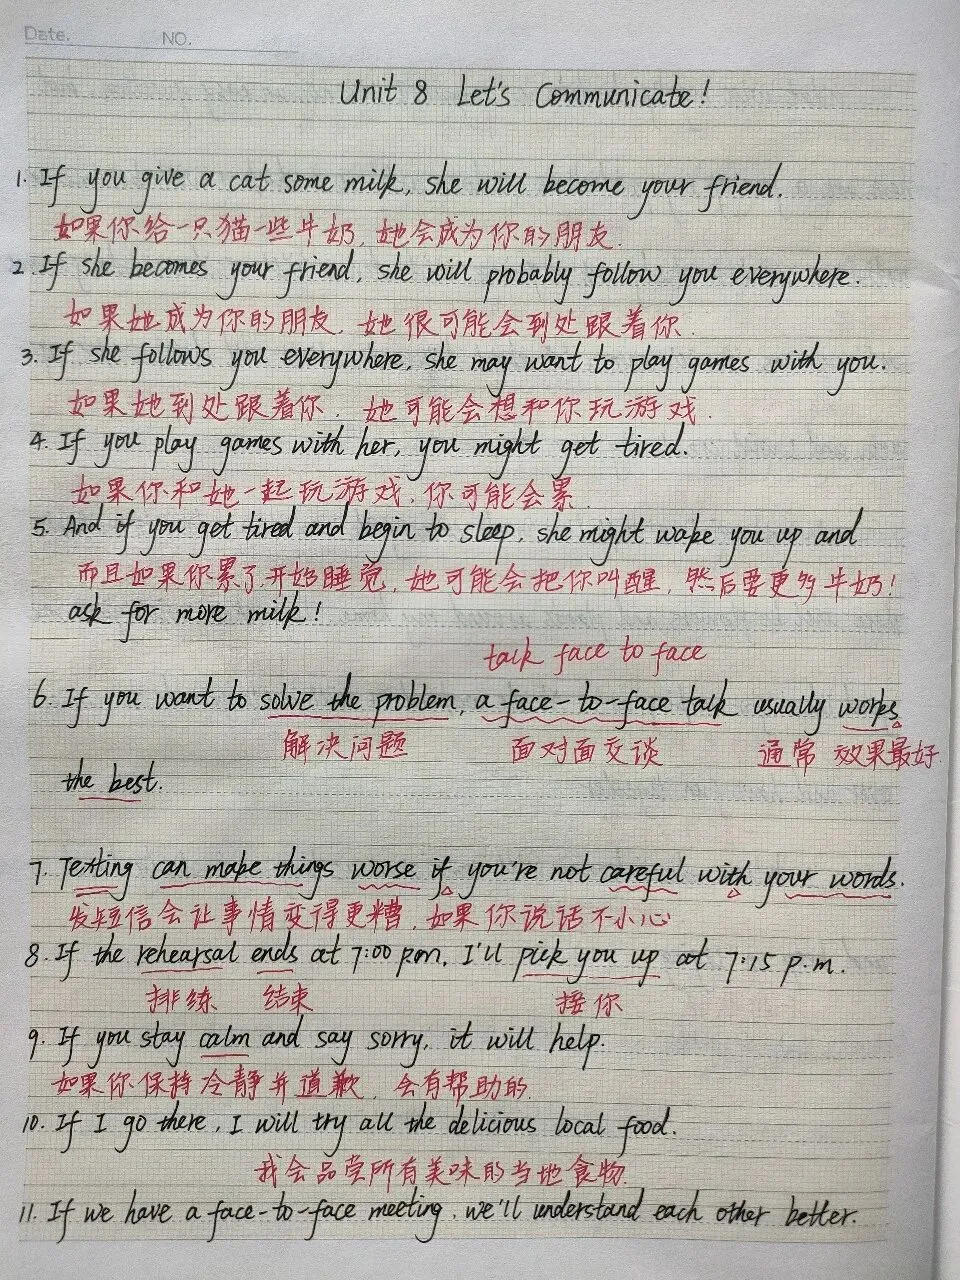 Date. NO.
Unit 8 Let's Communicate!
1. If you give a cat some milk, she will become your friend.
如果你给一只猫一些牛奶,她会成为你的朋友.
2. If she becomes your friend, she will probably follow you everywhere.
如果她成为你的朋友,她很可能会到处跟着你.
3. If she follows you everywhere, she may want to play games with you.
如果她到处跟着你,她可能会想和你玩游戏.
4. If you play games with her, you might get tired.
如果你和她一起玩游戏,你可能会累.
5. And if you get tired and begin to sleep, she might wake you up and
而且如果你累了,开始睡觉,她可能会把你叫醒,然后要更多牛奶!
ask for more milk!
talk face to face
6. If you want to solve the problem, a face-to-face talk usually works
解决问题 面对面交谈 通常 效果最好.
the best.
7. Texting can make things worse if you're not careful with your words.
发短信会让事情变得更糟,如果你说话不小心
8. If the rehearsal ends at 7:00 p.m, I'll pick you up at 7:15 p.m.
排练 结束 接你
9. If you stay calm and say sorry, it will help.
如果你保持冷静并道歉,会有帮助的.
10. If I go there, I will try all the delicious local food.
我会品尝所有美味的当地食物.
11. If we have a face-to-face meeting, we'll understand each other better.